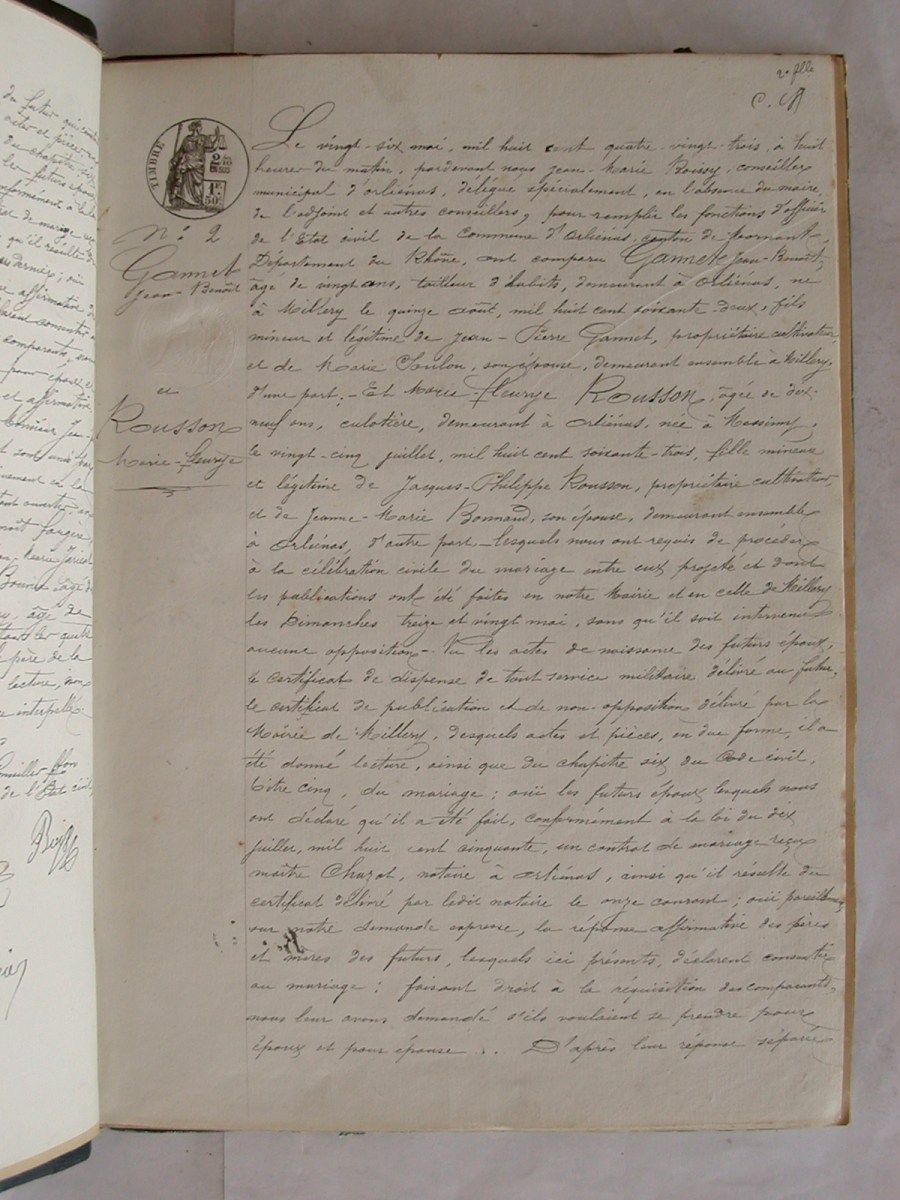 2e flle
TIMBRE
2 10
1F
50c
N: 2
Gannet
Jean-Benoît
et
Rousson
Marie-Fleurye
Le vingt-six mai, mil huit cent quatre-vingt-trois, à huit
heures du matin, pardevant nous Jean-Marie Boissy, conseiller
municipal d'Orliénas, délégué spécialement, en l'absence du maire
de l'adjoint et autres conseillers, pour remplir les fonctions d'officier
de l'Etat civil de la Commune d'Orliénas, canton de
Département du Rhône, ont comparu Gannet Jean-Benoît,
âgé de vingt ans, tailleur d'habits, demeurant à Orliénas, né
à Millery le quinze août, mil huit cent soixante-deux, fils
mineur et légitime de Jean-Pierre Gannet, propriétaire cultivateur,
et de Marie Soulon, son épouse, demeurant ensemble à Millery,
d'une part; - Et Marie-Fleurye Rousson, âgée de dix-
neuf ans, culotière, demeurant à Orliénas, née à Messimy,
le vingt-cinq juillet, mil huit cent soixante-trois, fille mineure
et légitime de Jacques-Philippe Rousson, propriétaire cultivateur,
et de Jeanne-Marie Bonnand, son épouse, demeurant ensemble
à Orliénas, d'autre part - lesquels nous ont requis de procéder
à la célébration civile du mariage entre eux projeté et dont
les publications ont été faites en notre Mairie et en celle de Millery
les Dimanches treize et vingt mai, sans qu'il soit intervenu
aucune opposition - Vu les actes de naissance des futurs époux,
le certificat de dispense de tout service militaire délivré au futur,
le certificat de publication et de non-opposition délivré par la
Mairie de Millery, desquels actes et pièces, en due forme, il a
été donné lecture, ainsi que du chapitre six du Code civil,
titre cinq, du mariage; ouï les futurs époux lesquels nous
ont déclaré qu'il a été fait, conformément à la loi du dix
juillet, mil huit cent cinquante, un contrat de mariage reçu
maître Chazot, notaire à Orliénas, ainsi qu'il résulte du
certificat délivré par ledit notaire le onze courant; ouï pareillement
sur notre demande expresse, la réponse affirmative des pères
et mères des futurs, lesquels ici présents, déclarent consentir
au mariage; faisant droit à la réquisition des comparants,
nous leur avons demandé s'ils voulaient se prendre pour
époux et pour épouse ... D'après leur réponse séparée